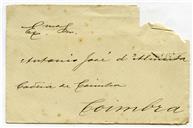 Exmo Snr.
Antonio José d'Almeida
Cadeia de Coimbra
Coimbra